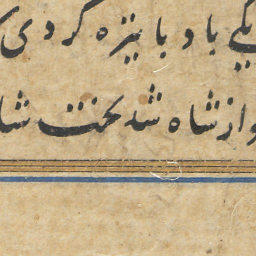 یکی باد با نیزه کردی
واز شاه شد بخت شا